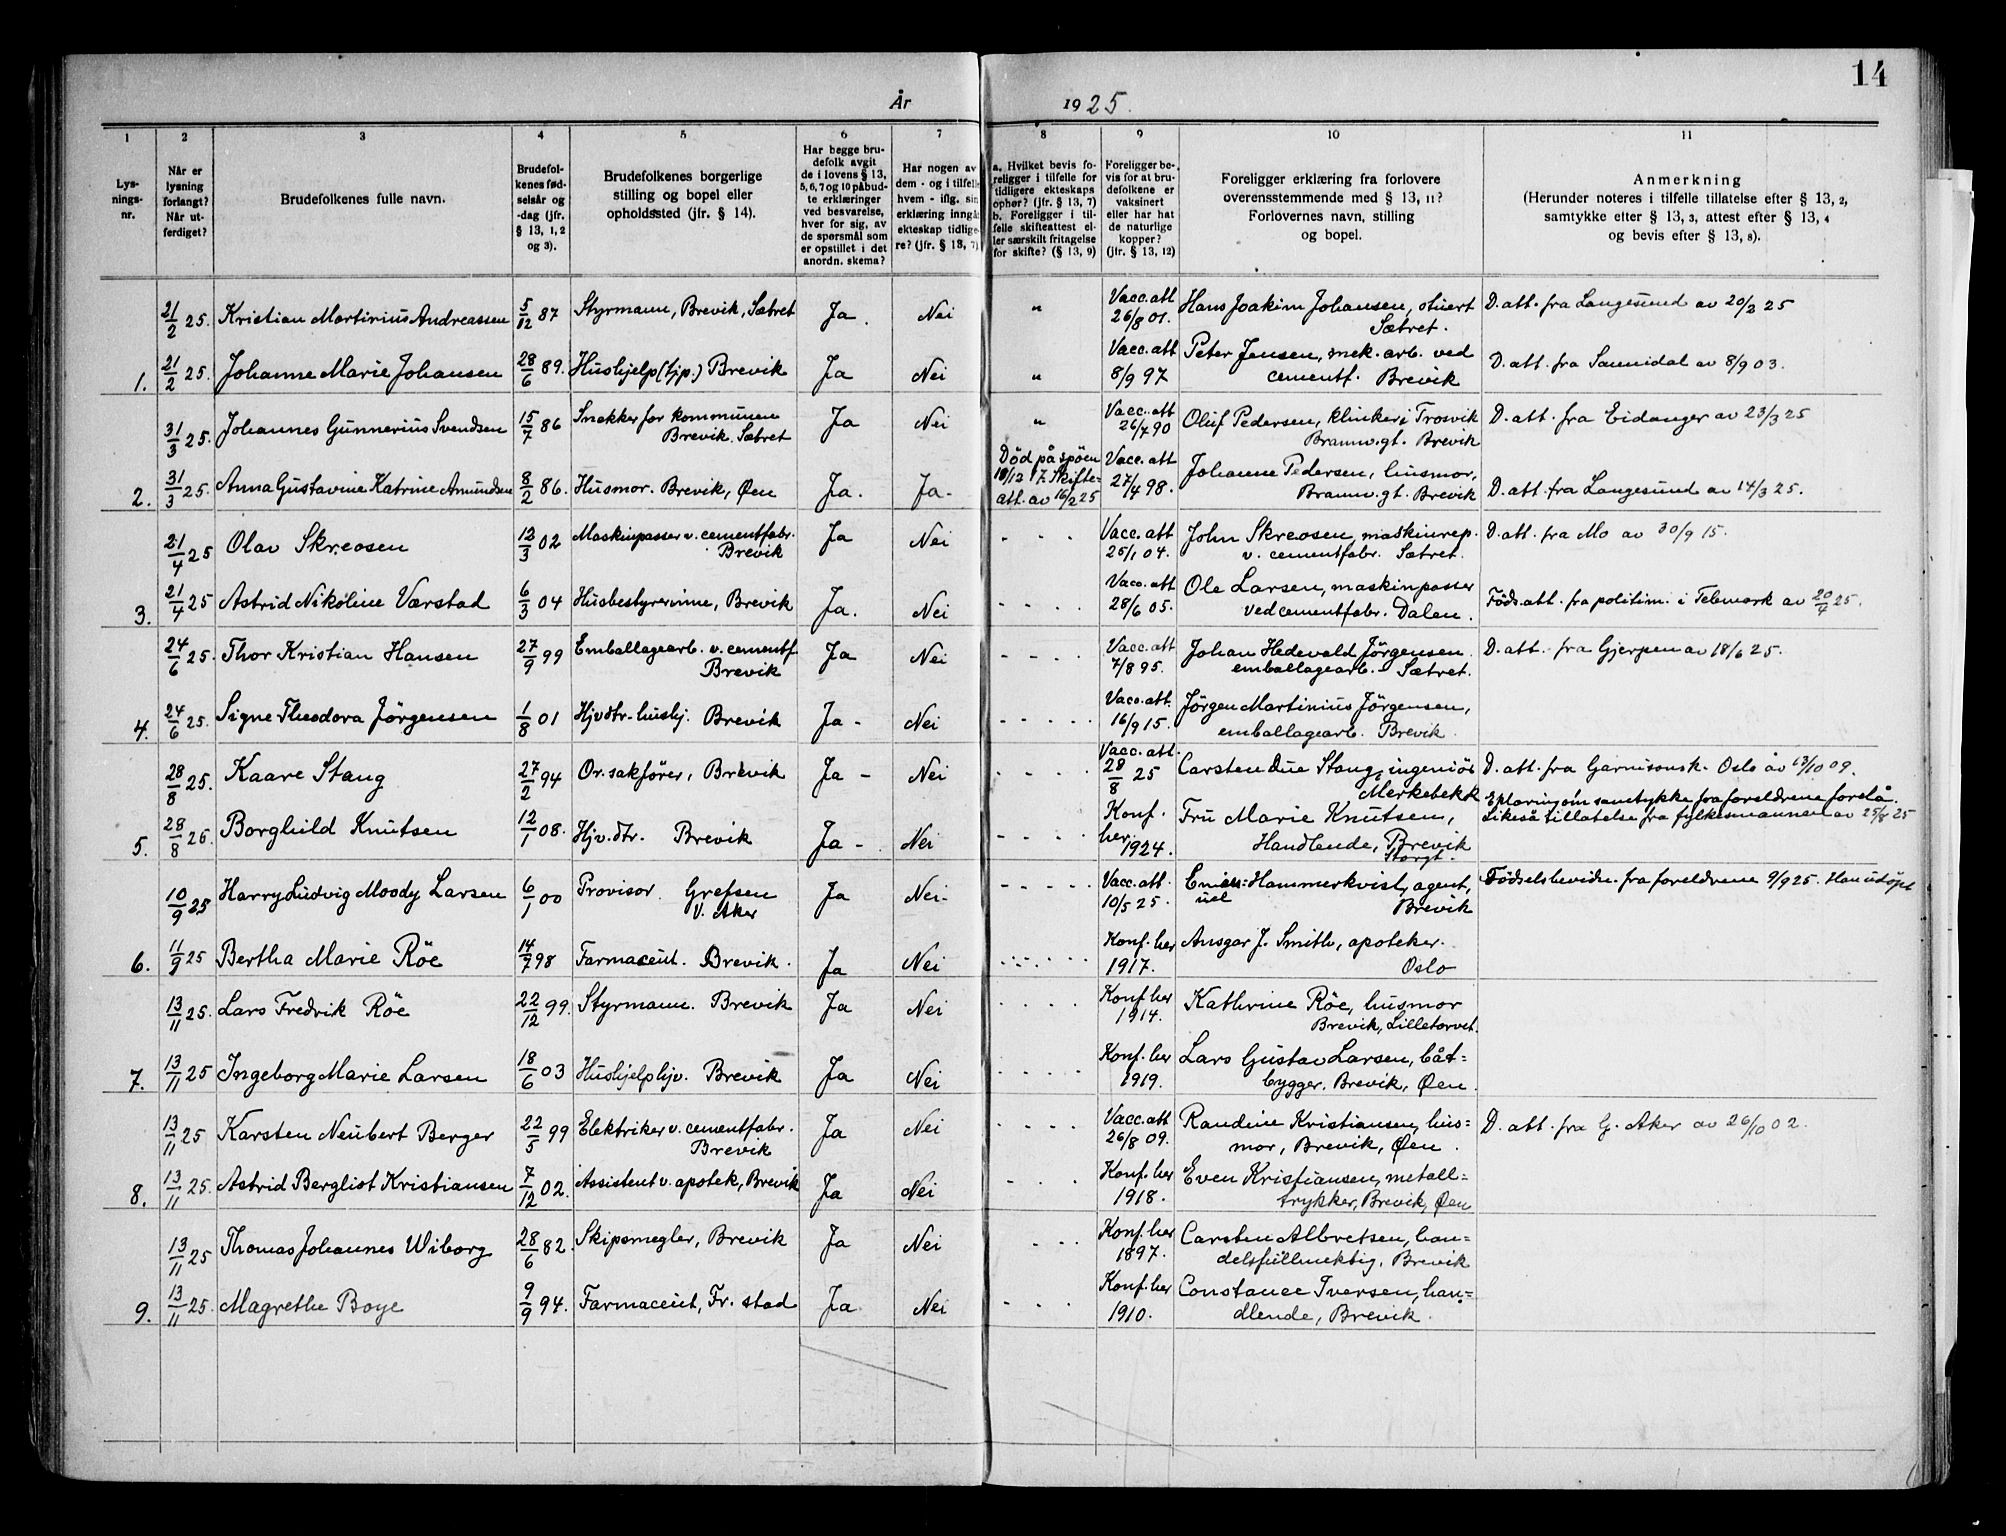 14
År 1925.
1 2 3 4 5 6 7 8 9 10 11
Lys-
nings-
nr.
Når er
lysning
forlangt?
Når ut-
ferdiget?
Brudefolkenes fulle navn.
Brudefol-
kenes fød-
selsår og
-dag (jfr.
§ 13, 1, 2
og 3).
Brudefolkenes borgerlige
stilling og bopel eller
opholdssted (jfr. § 14).
Har begge bru-
defolk avgit
de i lovens § 13,
5, 6, 7 og 10 påbud-
te erklæringer
ved besvarelse,
hver for sig, av
de spørsmål som
er opstillet i det
anordn. skema?
Har nogen av
dem - og i tilfelle
hvem - iflg. sin
erklæring inngåt
ekteskap tidlige-
re? (jfr. § 13, 7)
a. Hvilket bevis fo-
religger i tilfelle for
tidligere ekteskaps
ophør? (jfr. § 13, 7)
b. Foreligger i til-
felle skifteattest el-
ler særskilt fritagelse
for skifte? (§ 13, 9)
Foreligger be-
vis for at bru-
defolkene er
vaksinert
eller har hat
de naturlige
kopper?
(jfr. § 13, 12)
Foreligger erklæring fra forlovere
overensstemmende med § 13, 11?
Forlovernes navn, stilling
og bopel.
Anmerkning
(Herunder noteres i tilfelle tillatelse efter § 13, 2,
samtykke efter § 13, 3, attest efter § 13, 4
og bevis efter § 13, 8).
21/2 25. Kristian Martinius Andreassen 5/12 87 Styrmann, Brevik, Sætret Ja. Nei " Vacc. att 26/8 01. Hans Joakim Johansen, stuert Sætret. D. att. fra Langesund av 20/2 25
1. 21/2 25. Johanne Marie Johansen 28/6 89. Hushjelp (tjp.) Brevik Ja Nei " Vacc. att 8/9 97 Peter Jensen, mek. arb. ved cementf. Brevik D. att. fra Sannidal av 8/9 03.
31/3 25. Johannes Gunnerius Svendsen 15/7 86 Snekker for kommunen Brevik. Sætret Ja Nei " Vacc. att 26/7 90 Oluf Pedersen, klinker i Trosvik Brannv. gt. Brevik D. att. fra Eidanger av 23/3 25
2. 31/3 25. Anna Gustavine Katrine Amundsen 8/2 86. Husmor. Brevik, Øen Ja. Ja- Død på sjøen 18/12 17. Skifte- att. av 16/2 25 Vacc. att 27/4 98. Johanne Pedersen, husmor, Brannv. gt. Brevik D. att. fra Langesund av 14/3 25.
21/4 25 Olav Skreosen 12/3 02 Maskinpasser v. cementfabr. Brevik Ja Nei - - - Vacc. att 25/1 04. John Skreosen, maskinrep. v. cementfabr. Sætret. D. att. fra Mo av 30/9 15.
3. 21/4 25 Astrid Nikoline Værstad 6/3 04 Husbestyrerinne, Brevik Ja. Nei - - - - Vacc. att 28/6 05. Ole Larsen, maskinpasser ved cementfabr. Dalen. Føds. att. fra politim. i Telemark av 20/4 25.
24/6 25. Thor Kristian Hansen 27/9 99 Emballagearb. v. cementf. Brevik Ja Nei - - - - Vacc. att 7/8 95. Johan Hedevald Jörgensen. emballagearb. Sætret. D. att. fra Gjerpen av 18/6 25.
4. 24/6 25. Signe Theodora Jörgensen 1/8 01 Hjv. dtr. - hushj. Brevik Ja - Nei - - - - - Vacc. att. 16/9 15. Jörgen Martinius Jörgensen, emballagearb. Brevik.
28/8 25. Kaare Stang 27/2 94 Or. sakfører, Brevik Ja - Nei - - - - Vacc. att. 28/8 25 Carsten Due Stang, ingeniör Merkebekk D. att. fra Garnisonsk. Oslo av 13/10 09.
5. 28/8 25. Borghild Knutsen 12/1 08. Hjv. dtr. Brevik Ja - Nei - - - - Konf. her 1924. Fru Marie Knutsen, Handlende, Brevik Storgt. Erklæring om samtykke fra foreldrene forelå. Likeså tillatelse fra fylkesmannen av 25/8 25
10/9 25 Harry Ludvig Moody Larsen 6/1 00 Provisor Grefsen V. Aker Ja Nei- - - - - - Vacc. att. 10/5 25. Emanuel Hammerkvist, agent, Brevik Fødselsbevidn. fra foreldrene 9/9 25. Han udöpt
6. 11/9 25 Bertha Marie Röe 14/7 98 Farmaceut. Brevik. Ja Nei - - - - - Konf. her 1917. Ansgar J. Smith, apoteker. Oslo
13/11 25. Lars Fredrik Röe 22/12 99. Styrmann. Brevik Ja Nei - - - - Konf. her 1914. Kathrine Röe, husmor Brevik, Lilletorvet.
7. 13/11 25 Ingeborg Marie Larsen 18/6 03 Hushjelp hjv. Brevik Ja Nei - - - - Konf. her 1919. Lars Gustav Larsen, båt= bygger. Brevik, Øen.
13/11 25 Karsten Neubert Berger 22/5 99 Elektriker v. cementfabr. Brevik Ja Nei - - - - Vacc. att 26/8 09. Randine Kristiansen, hus= mor, Brevik, Øen. D. att. fra G. Aker av 26/10 02.
8. 13/11 25. Astrid Bergliot Kristiansen 7/12 02. Assistent v. apotek, Brevik Ja Nei - - - Konf. her 1918. Even Kristiansen, metall= trykker, Brevik, Øen
13/11 25 Thomas Johannes Wiborg 28/6 82. Skipsmegler, Brevik Ja Nei - - - Konf. her 1897. Carsten Albretsen, han= delsfullmektig, Brevik
9. 13/11 25. Magrethe Boye 9/9 94. Farmaceut, Fr. stad Ja. Nei - - - Konf. her 1910. Constance Iversen, han= dlende, Brevik.